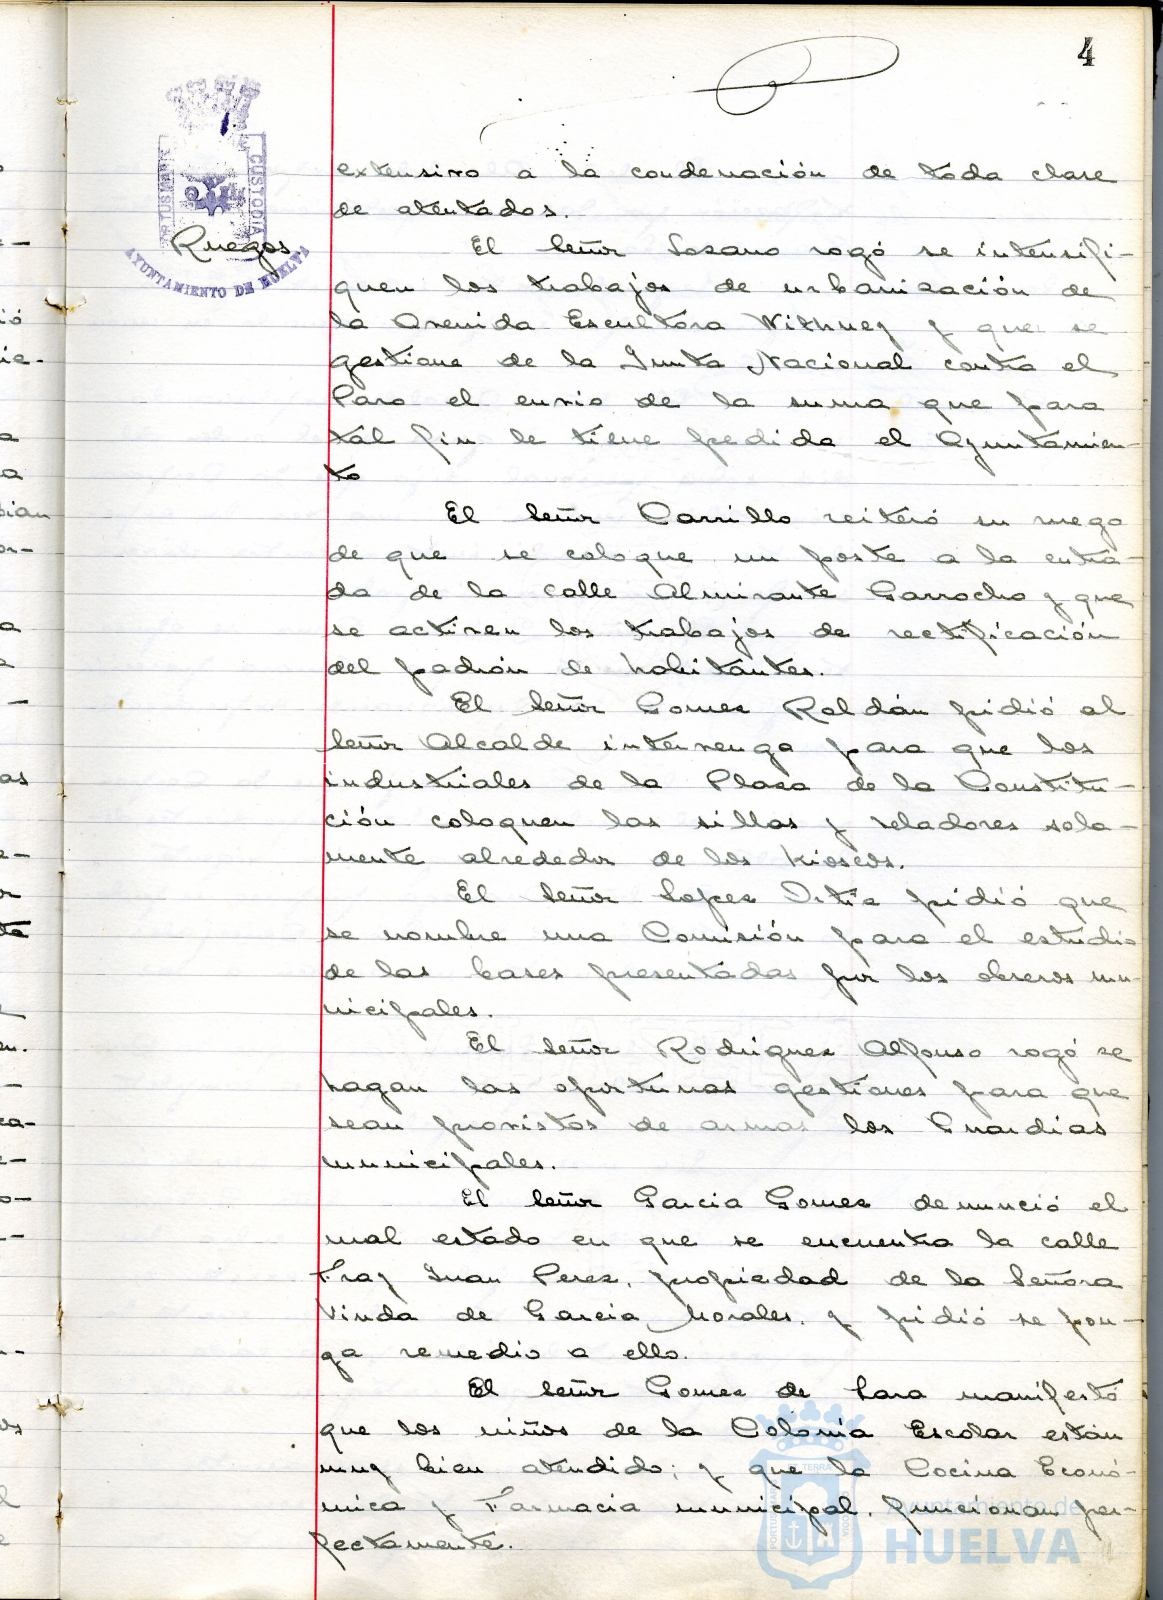 4
PORTUS MARIS
CUSTODIA
AYUNTAMIENTO DE HUELVA
extensivo a la condenación de toda clase
de atentados.
Ruegos
El Señor Lozano rogó se intensifi-
quen los trabajos de urbanización de
la Avenida Escultora Withney y que se
gestione de la Junta Nacional contra el
Paro el envio de la suma que para
tal fin le tiene pedida el Ayuntamien-
to
El Señor Carrillo reiteró su ruego
de que se coloque un poste a la entra-
da de la calle Almirante Garrocho y que
se activen los trabajos de rectificación
del padrón de habitantes.
El Señor Gomez Roldán pidió al
Señor Alcalde intervenga para que los
industriales de la Plaza de la Constitu-
ción coloquen las sillas y veladores sola-
mente alrededor de los kioscos.
El Señor Lopez Ortiz pidió que
se nombre una Comisión para el estudio
de las bases presentadas por los obreros mu-
nicipales.
El Señor Rodriguez Alfonso rogó se
hagan las oportunas gestiones para que
sean provistos de armas los Guardias
municipales.
El Señor Garcia Gomez denunció el
mal estado en que se encuentra la calle
Fray Juan Perez, propiedad de la Señora
Viuda de Garcia Morales, y pidió se pon-
ga remedio a ello.
El Señor Gomez de Lara manifestó
que los niños de la Colonia Escolar están
muy bien atendido; y que la Cocina Econó-
mica y Farmacia municipal, funcionan per-
fectamente.
Ayuntamiento de
HUELVA